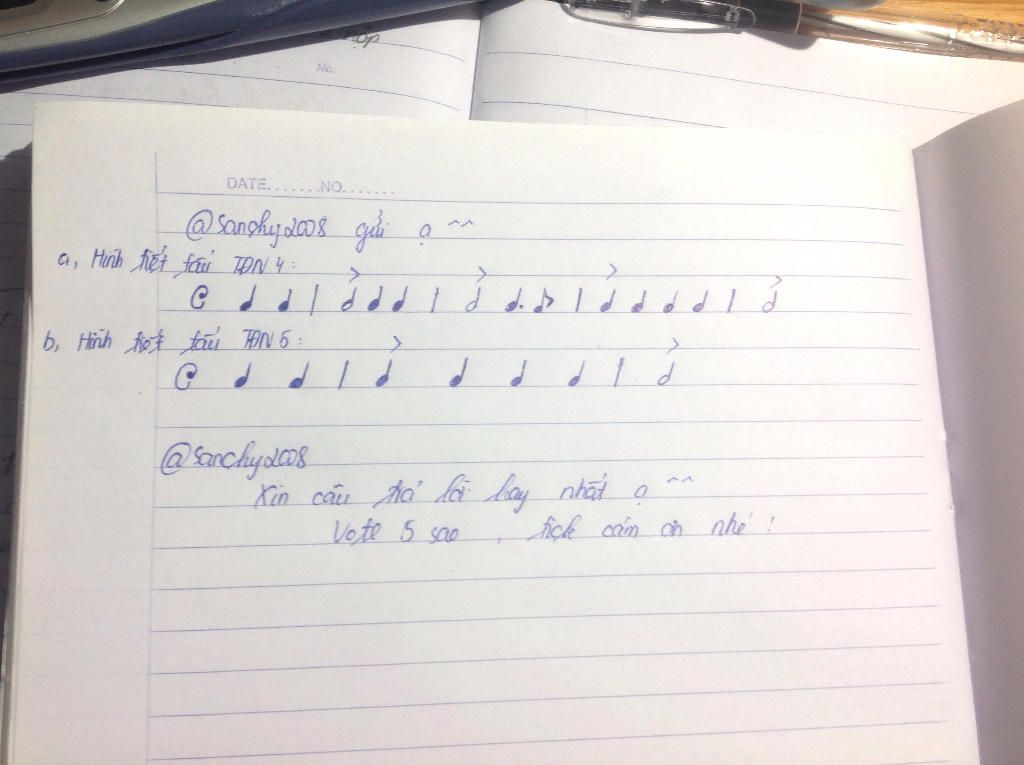 No.
DATE.......NO.......
@sanchy2008 gửi ạ ^^
a, Hình tiết tấu TĐN 4:
b, Hình tiết tấu TĐN 5:
@sanchy2008
Xin câu trả lời hay nhất ạ ^^
Vote 5 sao , tick cám ơn nhé !